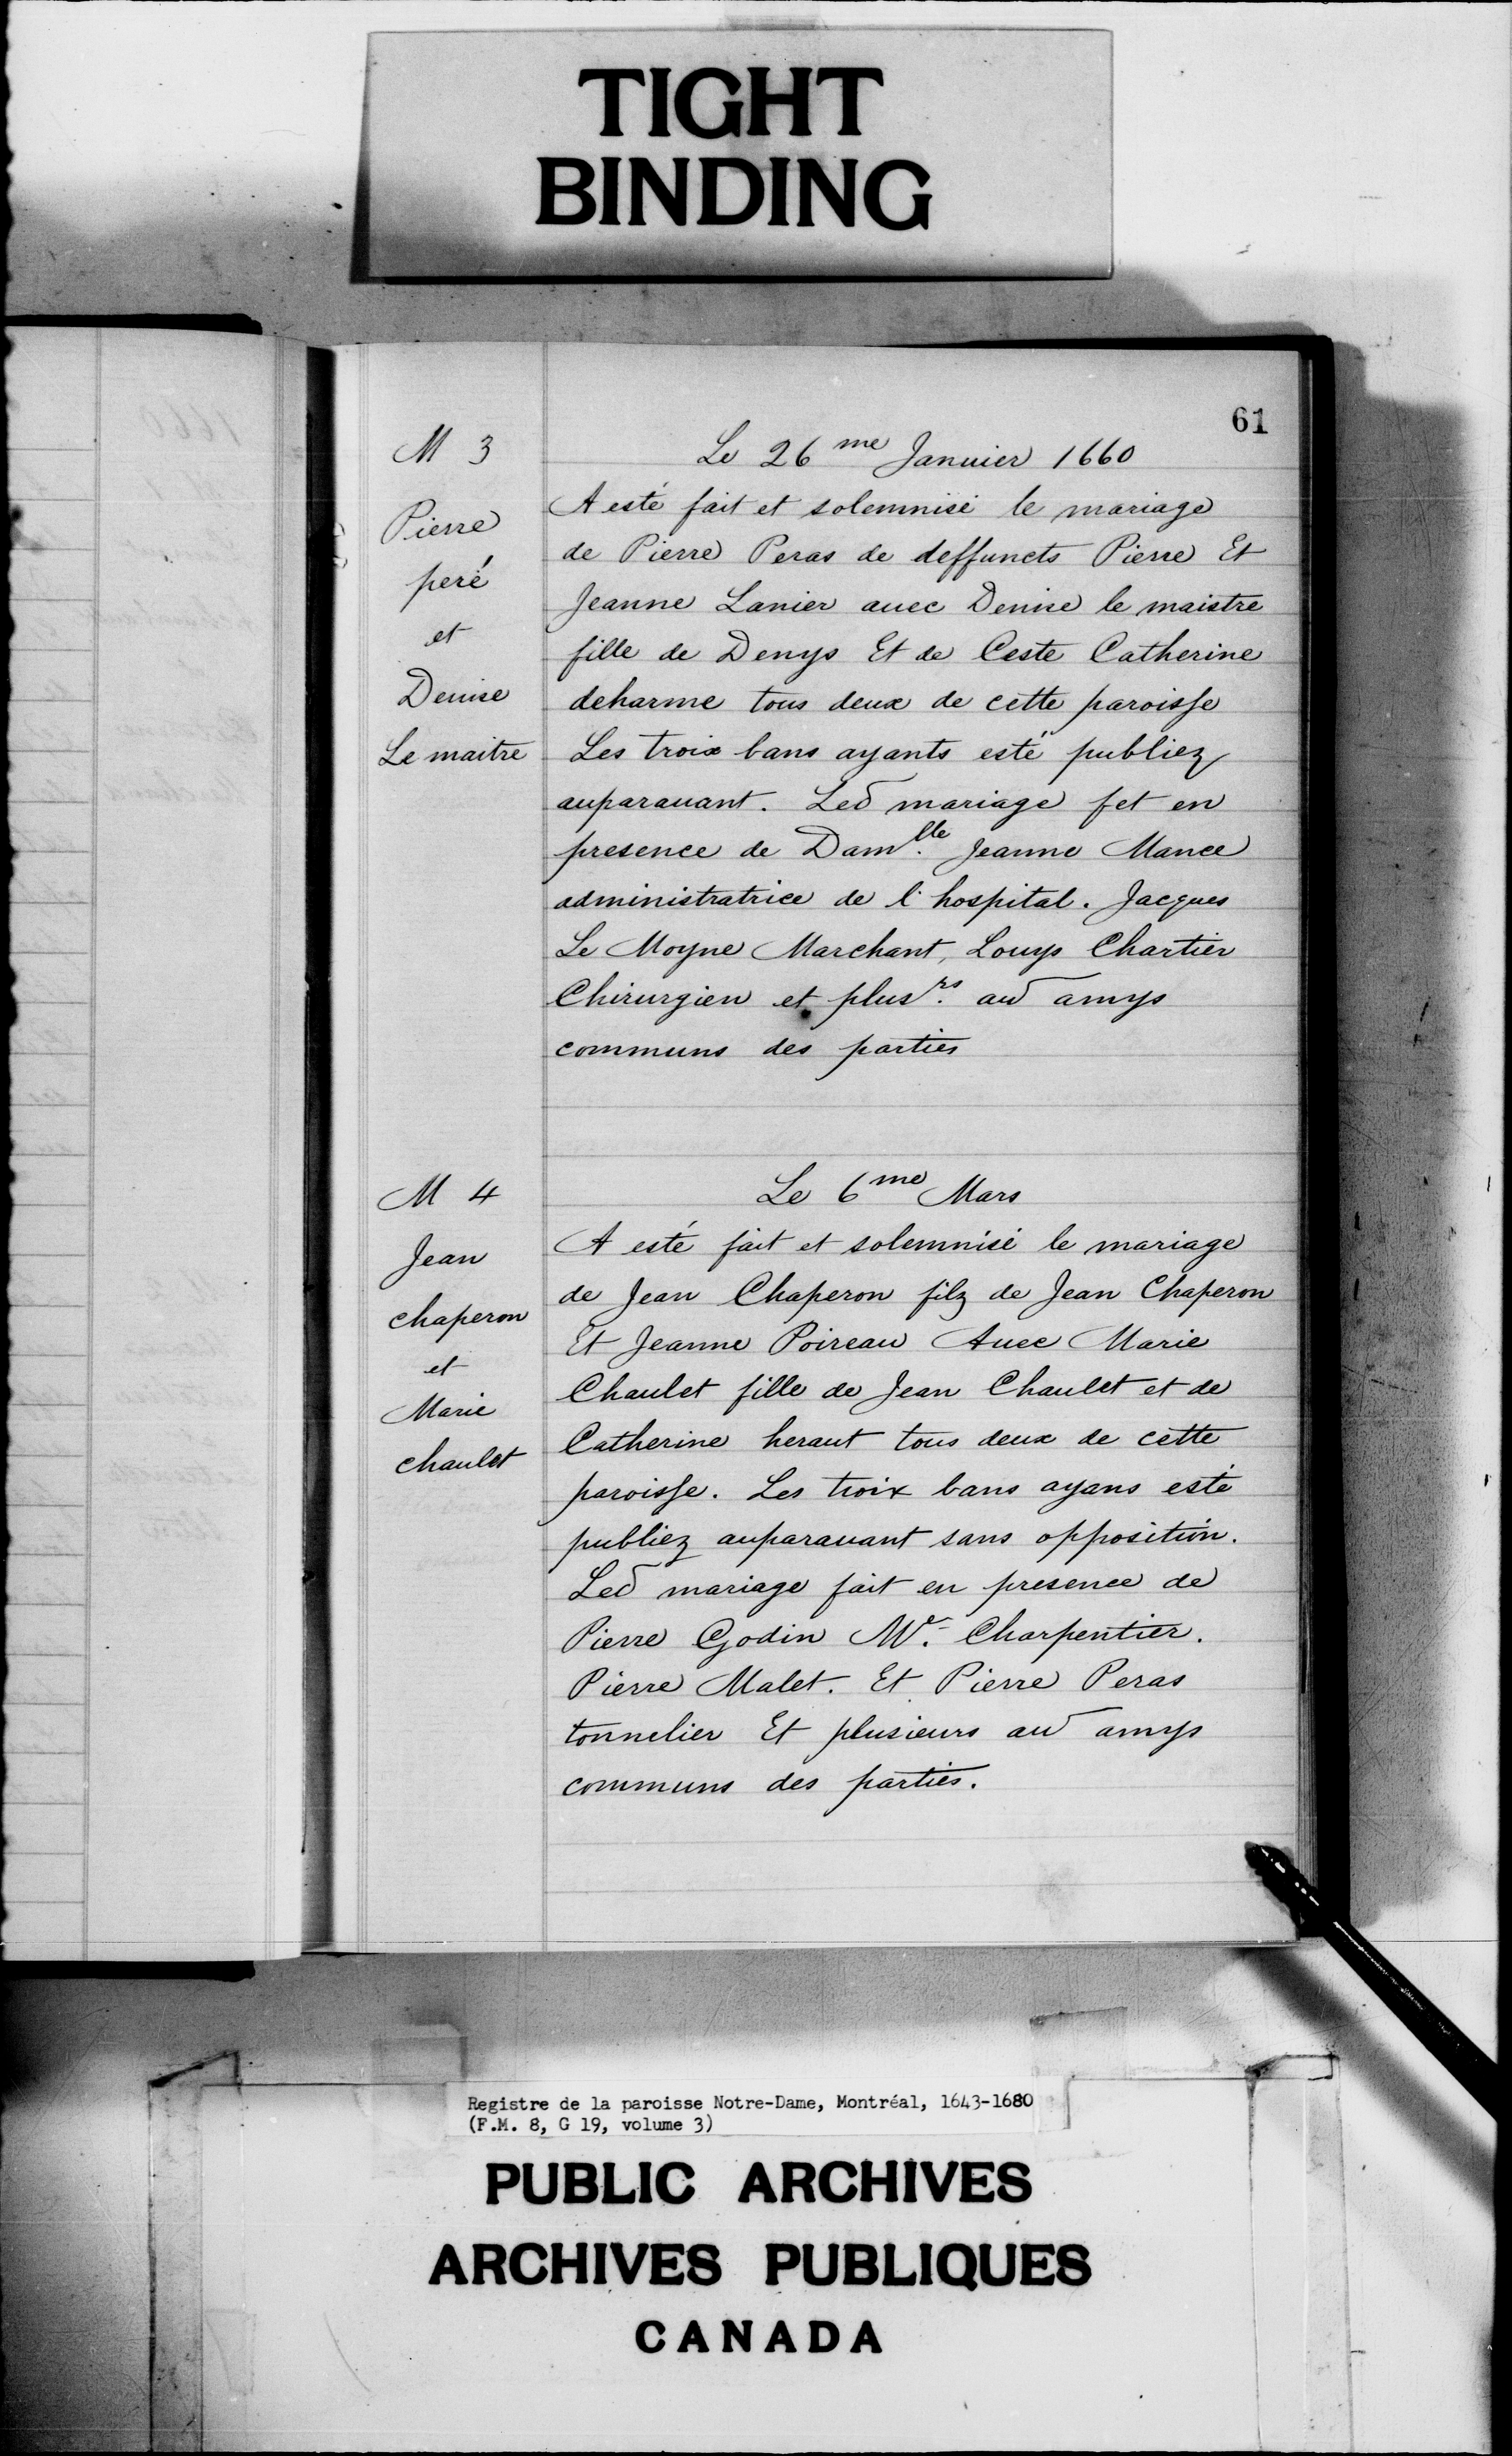 TIGHT
BINDING
61
M 3
Pierre
peré
et
Denise
Le maitre
Le 26 me Januier 1660
A esté fait et solemnisé le mariage
de Pierre Peras de deffuncts Pierre Et
Jeanne Lanier auec Denise le maistre
fille de Denys Et de Ceste Catherine
deharme tous deux de cette paroisse
Les troix bans ayants esté publiez
auparauant. Led mariage fet en
presence de Dam.lle Jeanne Mance
administratrice de l'hospital. Jacques
Le Moyne Marchant, Louys Chartier
Chirurgien et plus.rs au amys
communs des parties
M 4
Jean
chaperon
et
Marie
chaulet
Le 6 me Mars
A esté fait et solemnisé le mariage
de Jean Chaperon filz de Jean Chaperon
Et Jeanne Poireau Auec Marie
Chaulet fille de Jean Chaulet et de
Catherine heraut tous deux de cette
paroisse. Les troix bans ayans esté
publiez auparauant sans opposition.
Led mariage fait en presence de
Pierre Godin Me. Charpentier.
Pierre Malet. Et Pierre Peras
tonnelier Et plusieurs au amys
communs des parties.
Registre de la paroisse Notre-Dame, Montréal, 1643-1680
(F.M. 8, G 19, volume 3)
PUBLIC ARCHIVES
ARCHIVES PUBLIQUES
CANADA